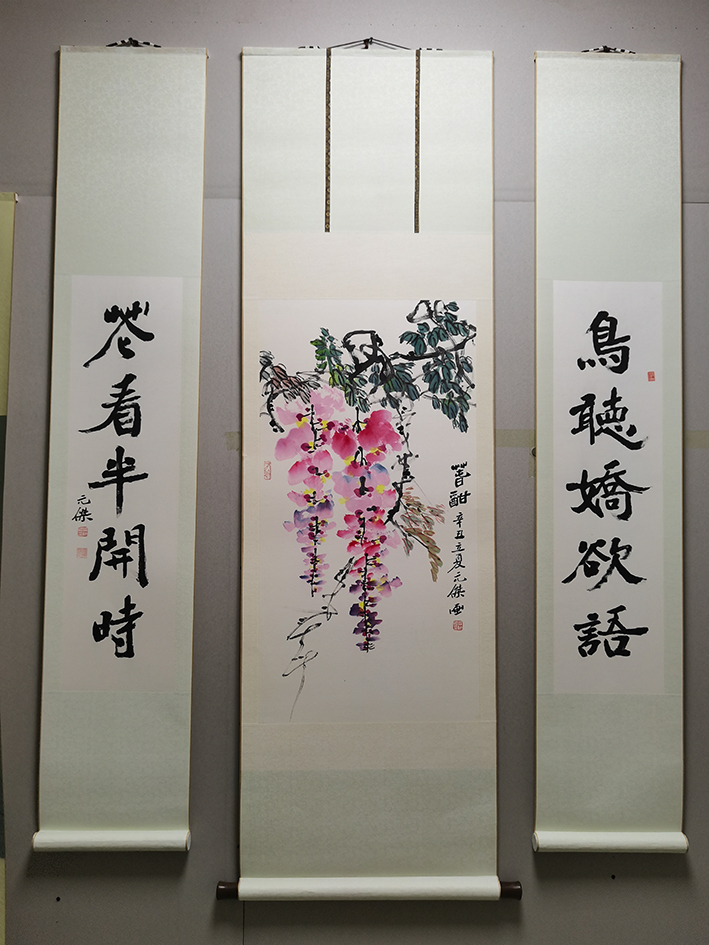 鳥聽嬌欲語
萅酣
辛丑立夏元傑画
花看半開時
元傑